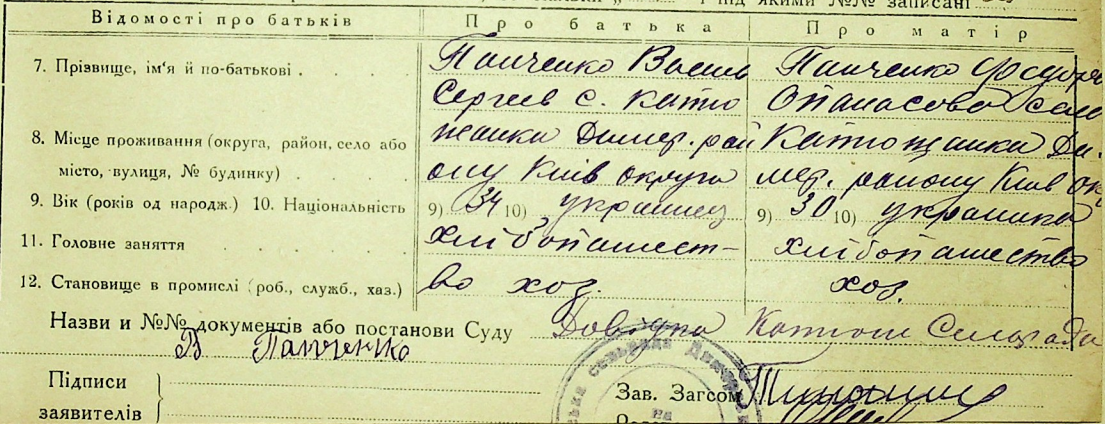 і під якими №№ записані
Відомості про батьків
Про батька
Про матір
7. Прізвище, ім'я й по-батькові
Панченко Василь
Сергеев с. Катю
Панченко Федора
Опанасова село
8. Місце проживання (округа, район, село або
місто, вулиця, № будинку)
жанки Димер. рай
ону Київ округа
Катюжанки Ди.
мер. району Київ ок
9. Вік (років од народж.) 10. Національність
9) 34 10) украинец
9) 30 10) украинка
11. Головне заняття
хлибопашест-
хлибопашество
12. Становище в промислі (роб., служб., хаз.)
во хоз.
хоз.
Назви и №№ документів або постанови Суду Довідка Катюж Сельради
В Панченко
Підписи
заявителів
Зав. Загсом
на